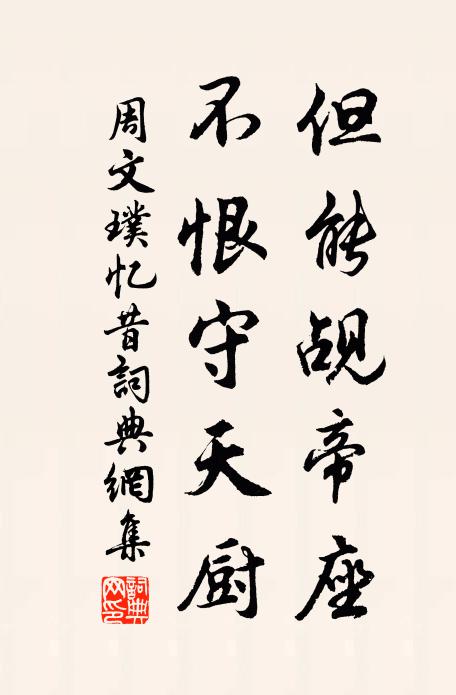 但能觇帝座
不恨守天厨
周文璞忆昔詞典網集
詞典网印